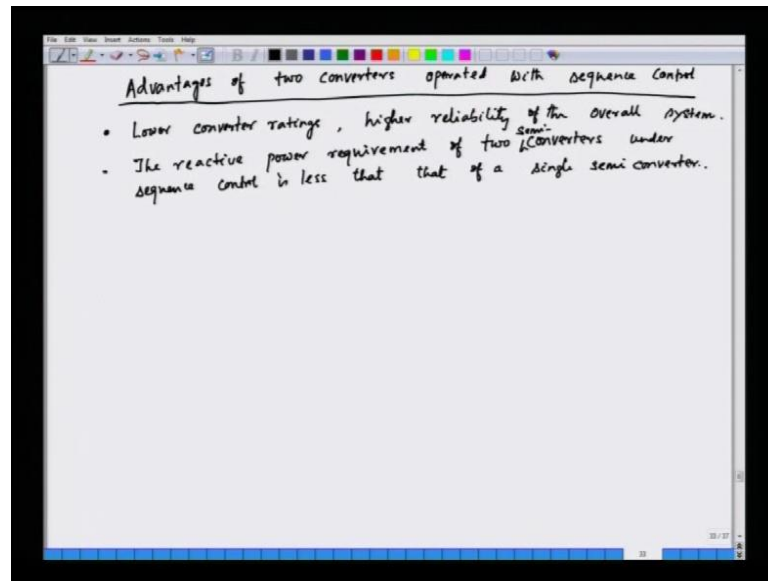 File Edit View Insert Actions Tools Help
Advantages of two converters operated with sequence control
• Lower converter ratings, higher reliability of the overall system.
• The reactive power requirement of two semi-converters under
sequence control is less that that of a single semi converter..
33 / 37
33